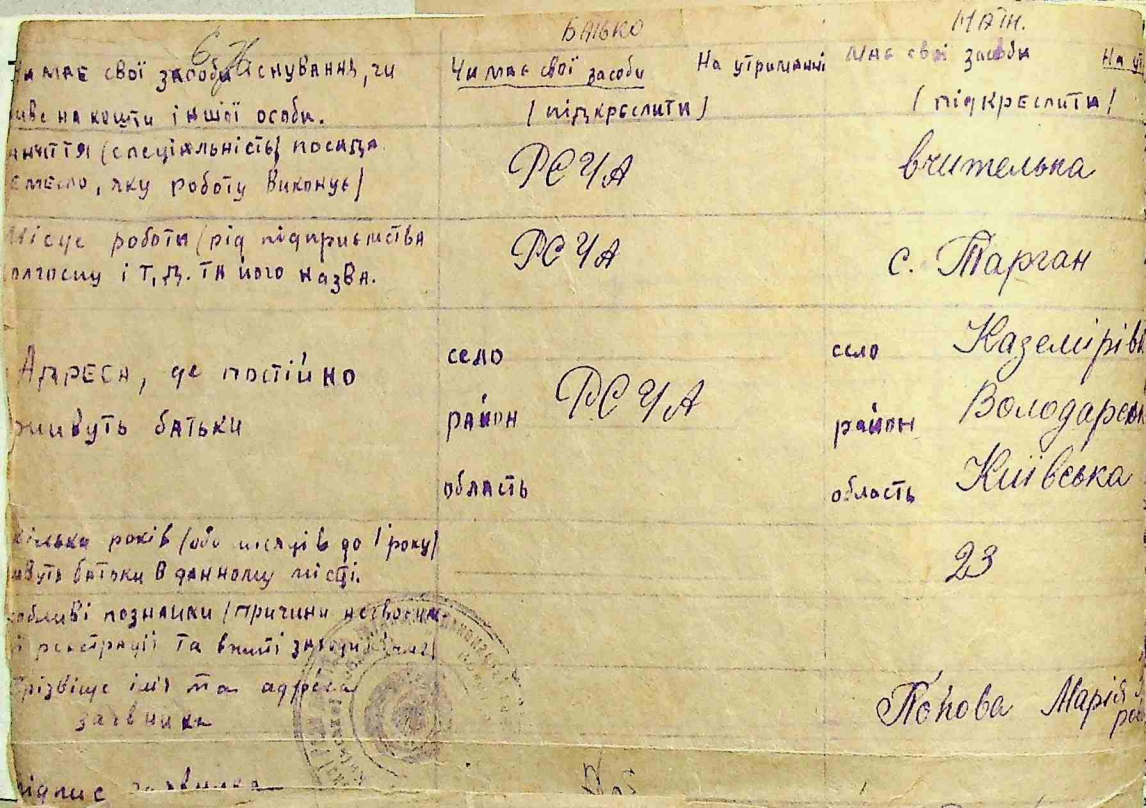 БАТЬКО МАТИ.
чи має свої засоби існування, чи Чи має свої засоби На утриманні має свої засоби На ут
живе на кошти іншої особи. (підкреслити) (підкреслити)
заняття (спеціальність) посада
ремесло, яку роботу виконує) РСЧА вчителька
Місце роботи (рід підприємства
колгоспу і т.д. та його назва. РСЧА с. Тарган
Адреса, де постійно
живуть батьки
село РСЧА село Каземірівк
район район Володарськ
область область Київська
кілька років (або місяців до 1 року)
живуть батьки в данному місці. 23
собливі познаики (причини несвоєчас
ї реєстрації та вжиті заходи
Прізвіще ім'я та адреса
заявника Попова Марія
підпис заявника